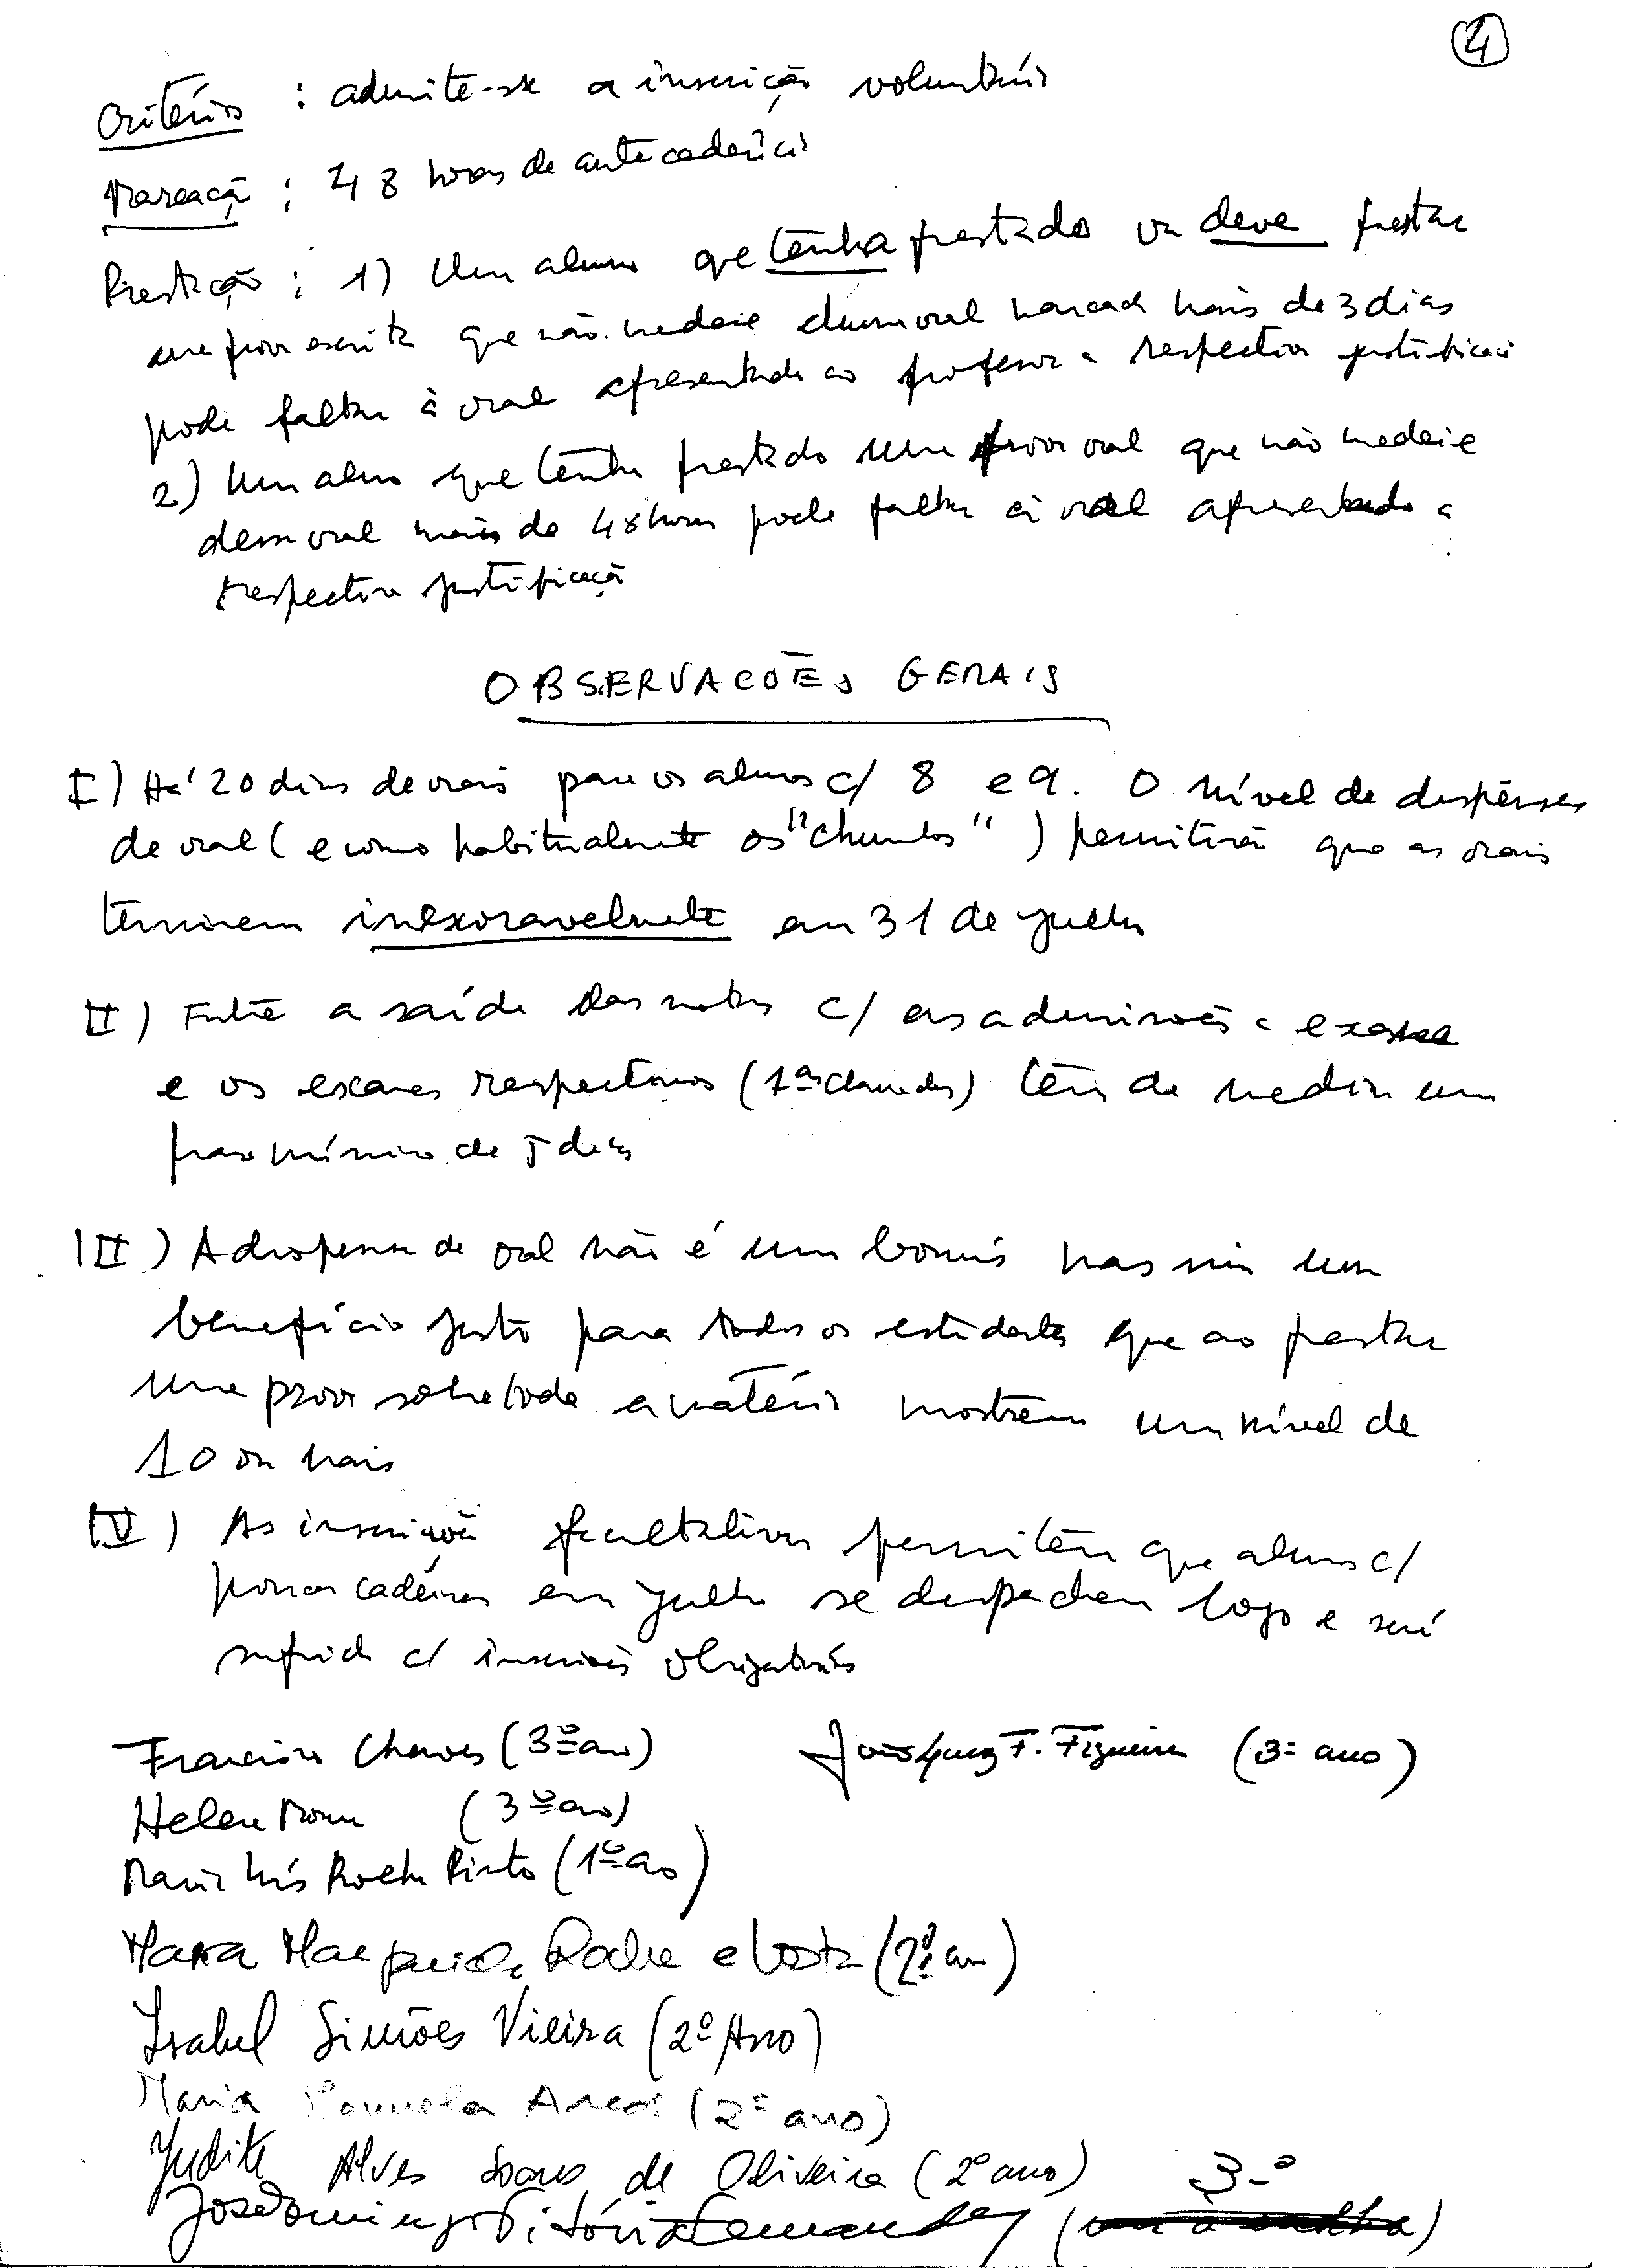 4
Critério : admite-se a inscrição voluntária
Marcação : 48 horas de antecedência
Prestação : 1) Um aluno que tenha prestado ou deve prestar
uma prova escrita que não medeie duma oral marcada mais de 3 dias
pode faltar à oral apresentando ao professor a respectiva justificação
2) Um aluno que tenha prestado uma prova oral que não medeie
dessa oral mais de 48 horas pode faltar à oral apresentando a
respectiva justificação
OBSERVACÕES GERAIS
I) Há 20 dias de orais para os alunos c/ 8 e 9. O nível de dispensas
de oral (e como habitualmente os "chumbos") permitirá que as orais
terminem inexoravelmente em 31 de Julho
II) Entre a saída das notas c/ as admissões a exame
e os exames respectivos (1as chamadas) têm de mediar um
prazo mínimo de 5 dias
III) A dispensa de oral não é um bonus mas sim um
benefício justo para todos os estudantes que ao prestar
uma prova sobre toda a matéria mostrem um nível de
10 ou mais
IV) As inscrições facultativas permitem que alunos c/
poucas cadeiras em Julho se despachem logo e
c/ inscrições obrigatórias
Francisco Chaves (3º ano) F. Figueira (3º ano)
Helena (3º ano)
Maria Inês Rocha Pinto (1º ano)
Maria Margarida Rocha e Costa (2º ano)
Isabel Simões Vieira (2º Ano)
Maria Manuela Arcas (2º ano)
Judite Alves Soares de Oliveira (2º ano)
José Domingos Vitória Fernandes (3º)